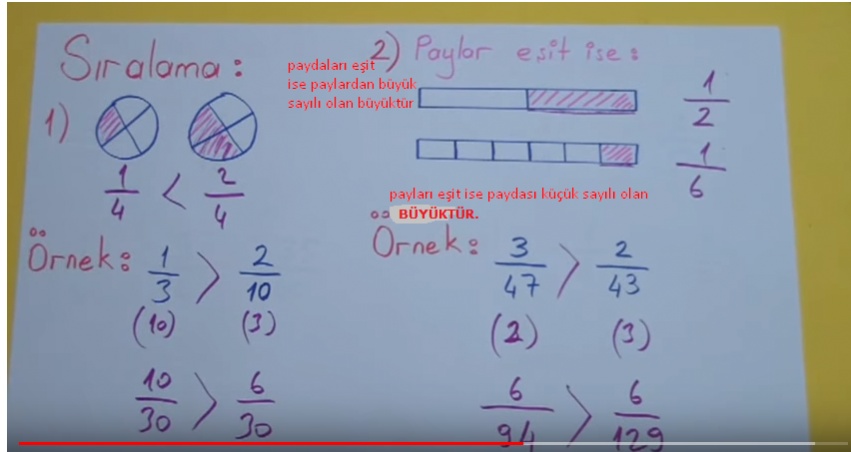 Sıralama:
1)
1/4 < 2/4
Örnek: 1/3 > 2/10
(10) (3)
10/30 > 6/30
paydaları eşit
ise paylardan büyük
sayılı olan büyüktür
2) Paylar eşit ise:
1/2
1/6
payları eşit ise paydası küçük sayılı olan
BÜYÜKTÜR.
Örnek: 3/47 > 2/43
(2) (3)
6/94 > 6/129